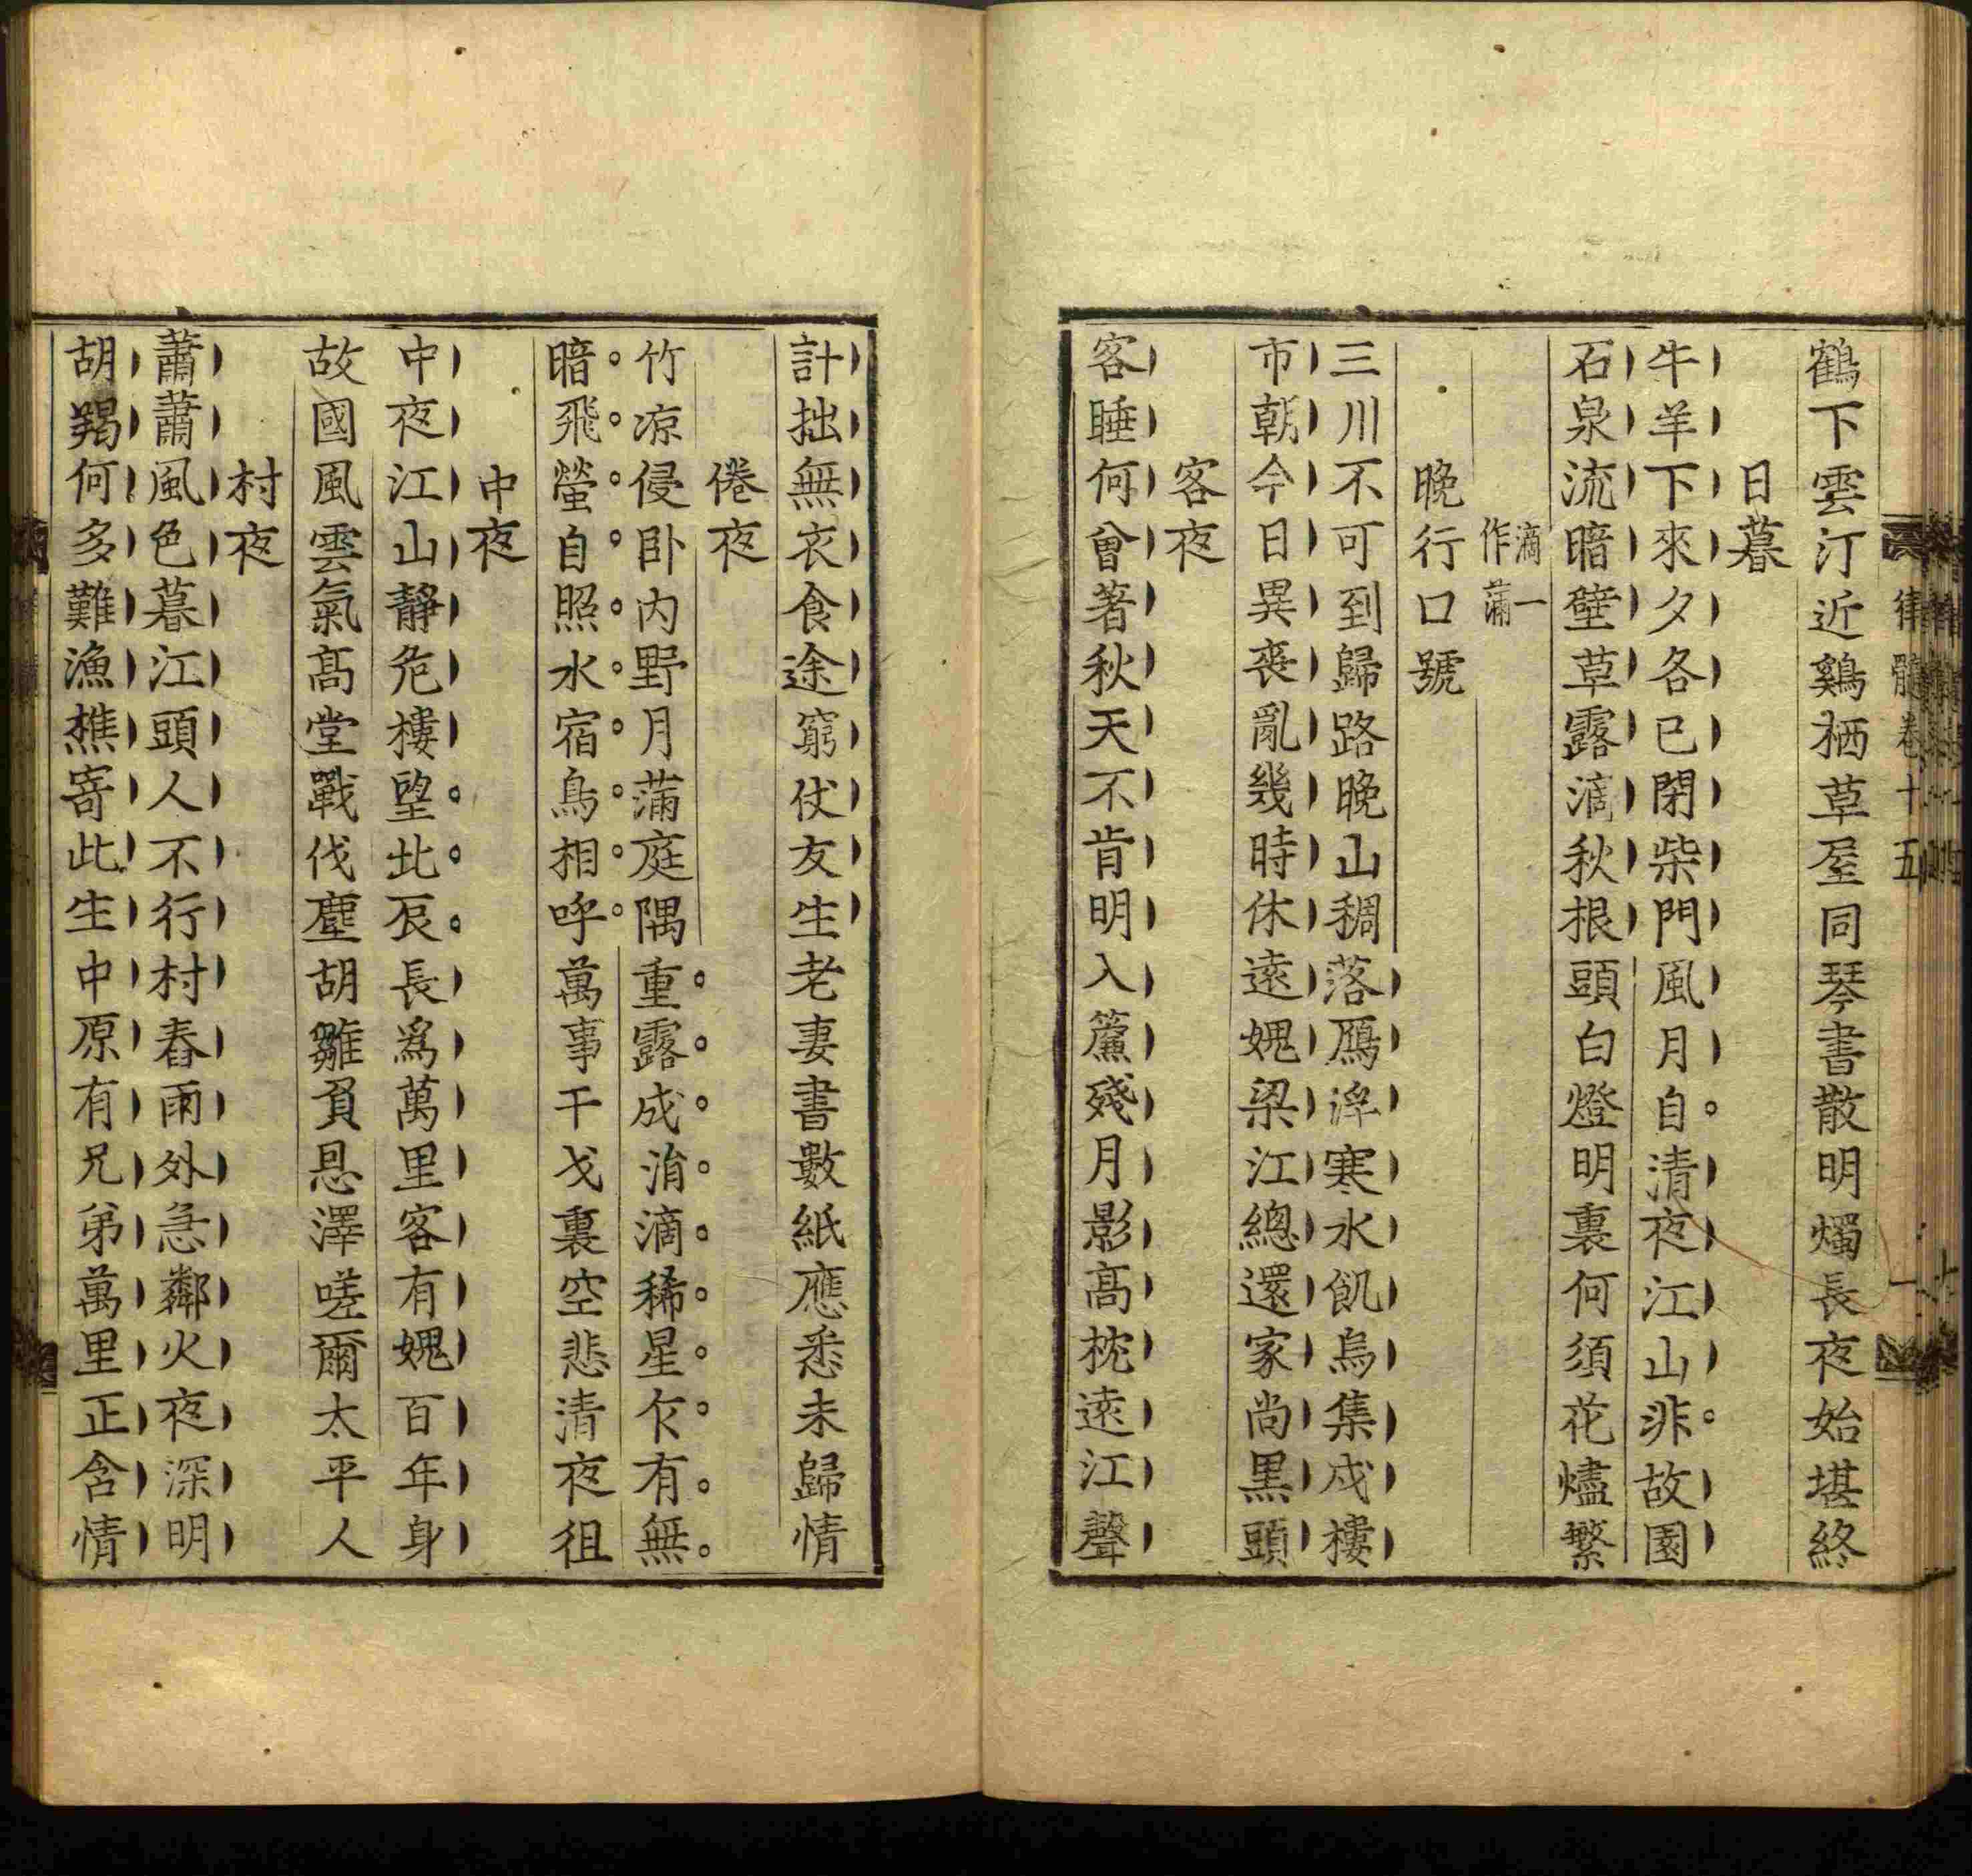 律髓卷十五
鶴下雲汀近鷄栖草屋同琴書散明燭長夜始堪終
日暮
牛羊下來夕各已閉柴門風月自清夜江山非故園
石泉流暗壁草露滴秋根頭白燈明裏何須花燼繁
滴一
作蒲
晚行口號
三川不可到歸路晚山稠落鴈浮寒水飢烏集戍樓
市朝今日異喪亂幾時休遠媿梁江總還家尚黑頭
客夜
客睡何曾著秋天不肯明入簾殘月影高枕遠江聲
計拙無衣食途窮仗友生老妻書數紙應悉未歸情
倦夜
竹凉侵卧内野月蒲庭隅重露成涓滴稀星乍有無
暗飛螢自照水宿鳥相呼萬事干戈裏空悲清夜徂
中夜
中夜江山靜危樓望北辰長爲萬里客有媿百年身
故國風雲氣髙堂戰伐塵胡雛負恩澤嗟爾太平人
村夜
蕭蕭風色暮江頭人不行村舂雨外急鄰火夜深明
胡羯何多難漁樵寄此生中原有兄弟萬里正含情